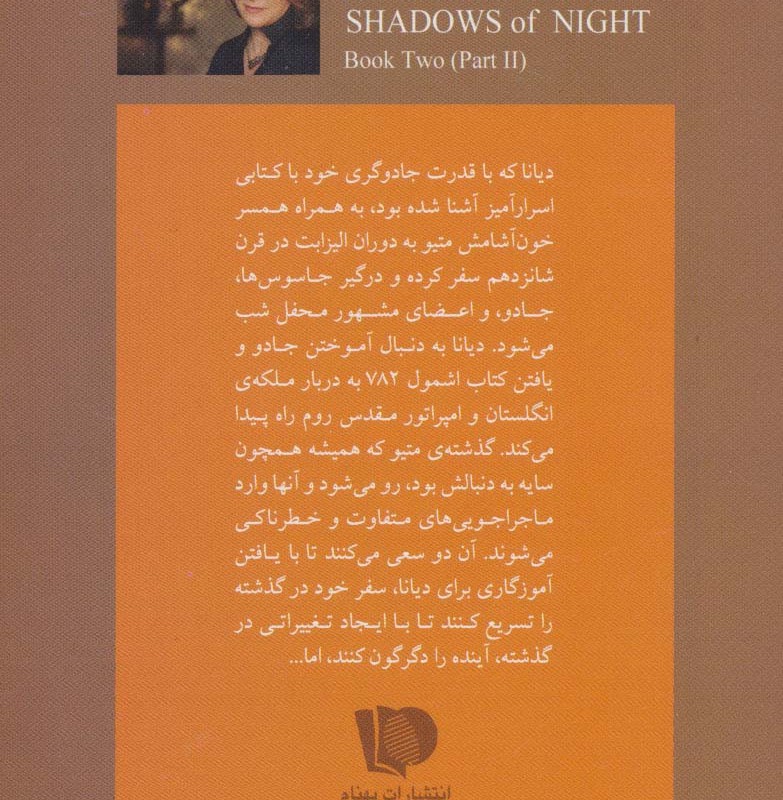 SHADOWS of NIGHT
Book Two (Part II)
دیانا که با قدرت جادوگری خود با کتابی
اسرارآمیز آشنا شده بود، به همراه همسر
خون‌آشامش متیو به دوران الیزابت در قرن
شانزدهم سفر کرده و درگیر جاسوس‌ها،
جادو، و اعضای مشهور محفل شب
می‌شود. دیانا به دنبال آموختن جادو و
یافتن کتاب اشمول ۷۸۲ به دربار ملکه‌ی
انگلستان و امپراتور مقدس روم راه پیدا
می‌کند. گذشته‌ی متیو که همیشه همچون
سایه به دنبالش بود، رو می‌شود و آنها وارد
ماجراجویی‌های متفاوت و خطرناکی
می‌شوند. آن دو سعی می‌کنند تا با یافتن
آموزگاری برای دیانا، سفر خود در گذشته
را تسریع کنند تا با ایجاد تغییراتی در
گذشته، آینده را دگرگون کنند، اما...
انتشارات بهنام